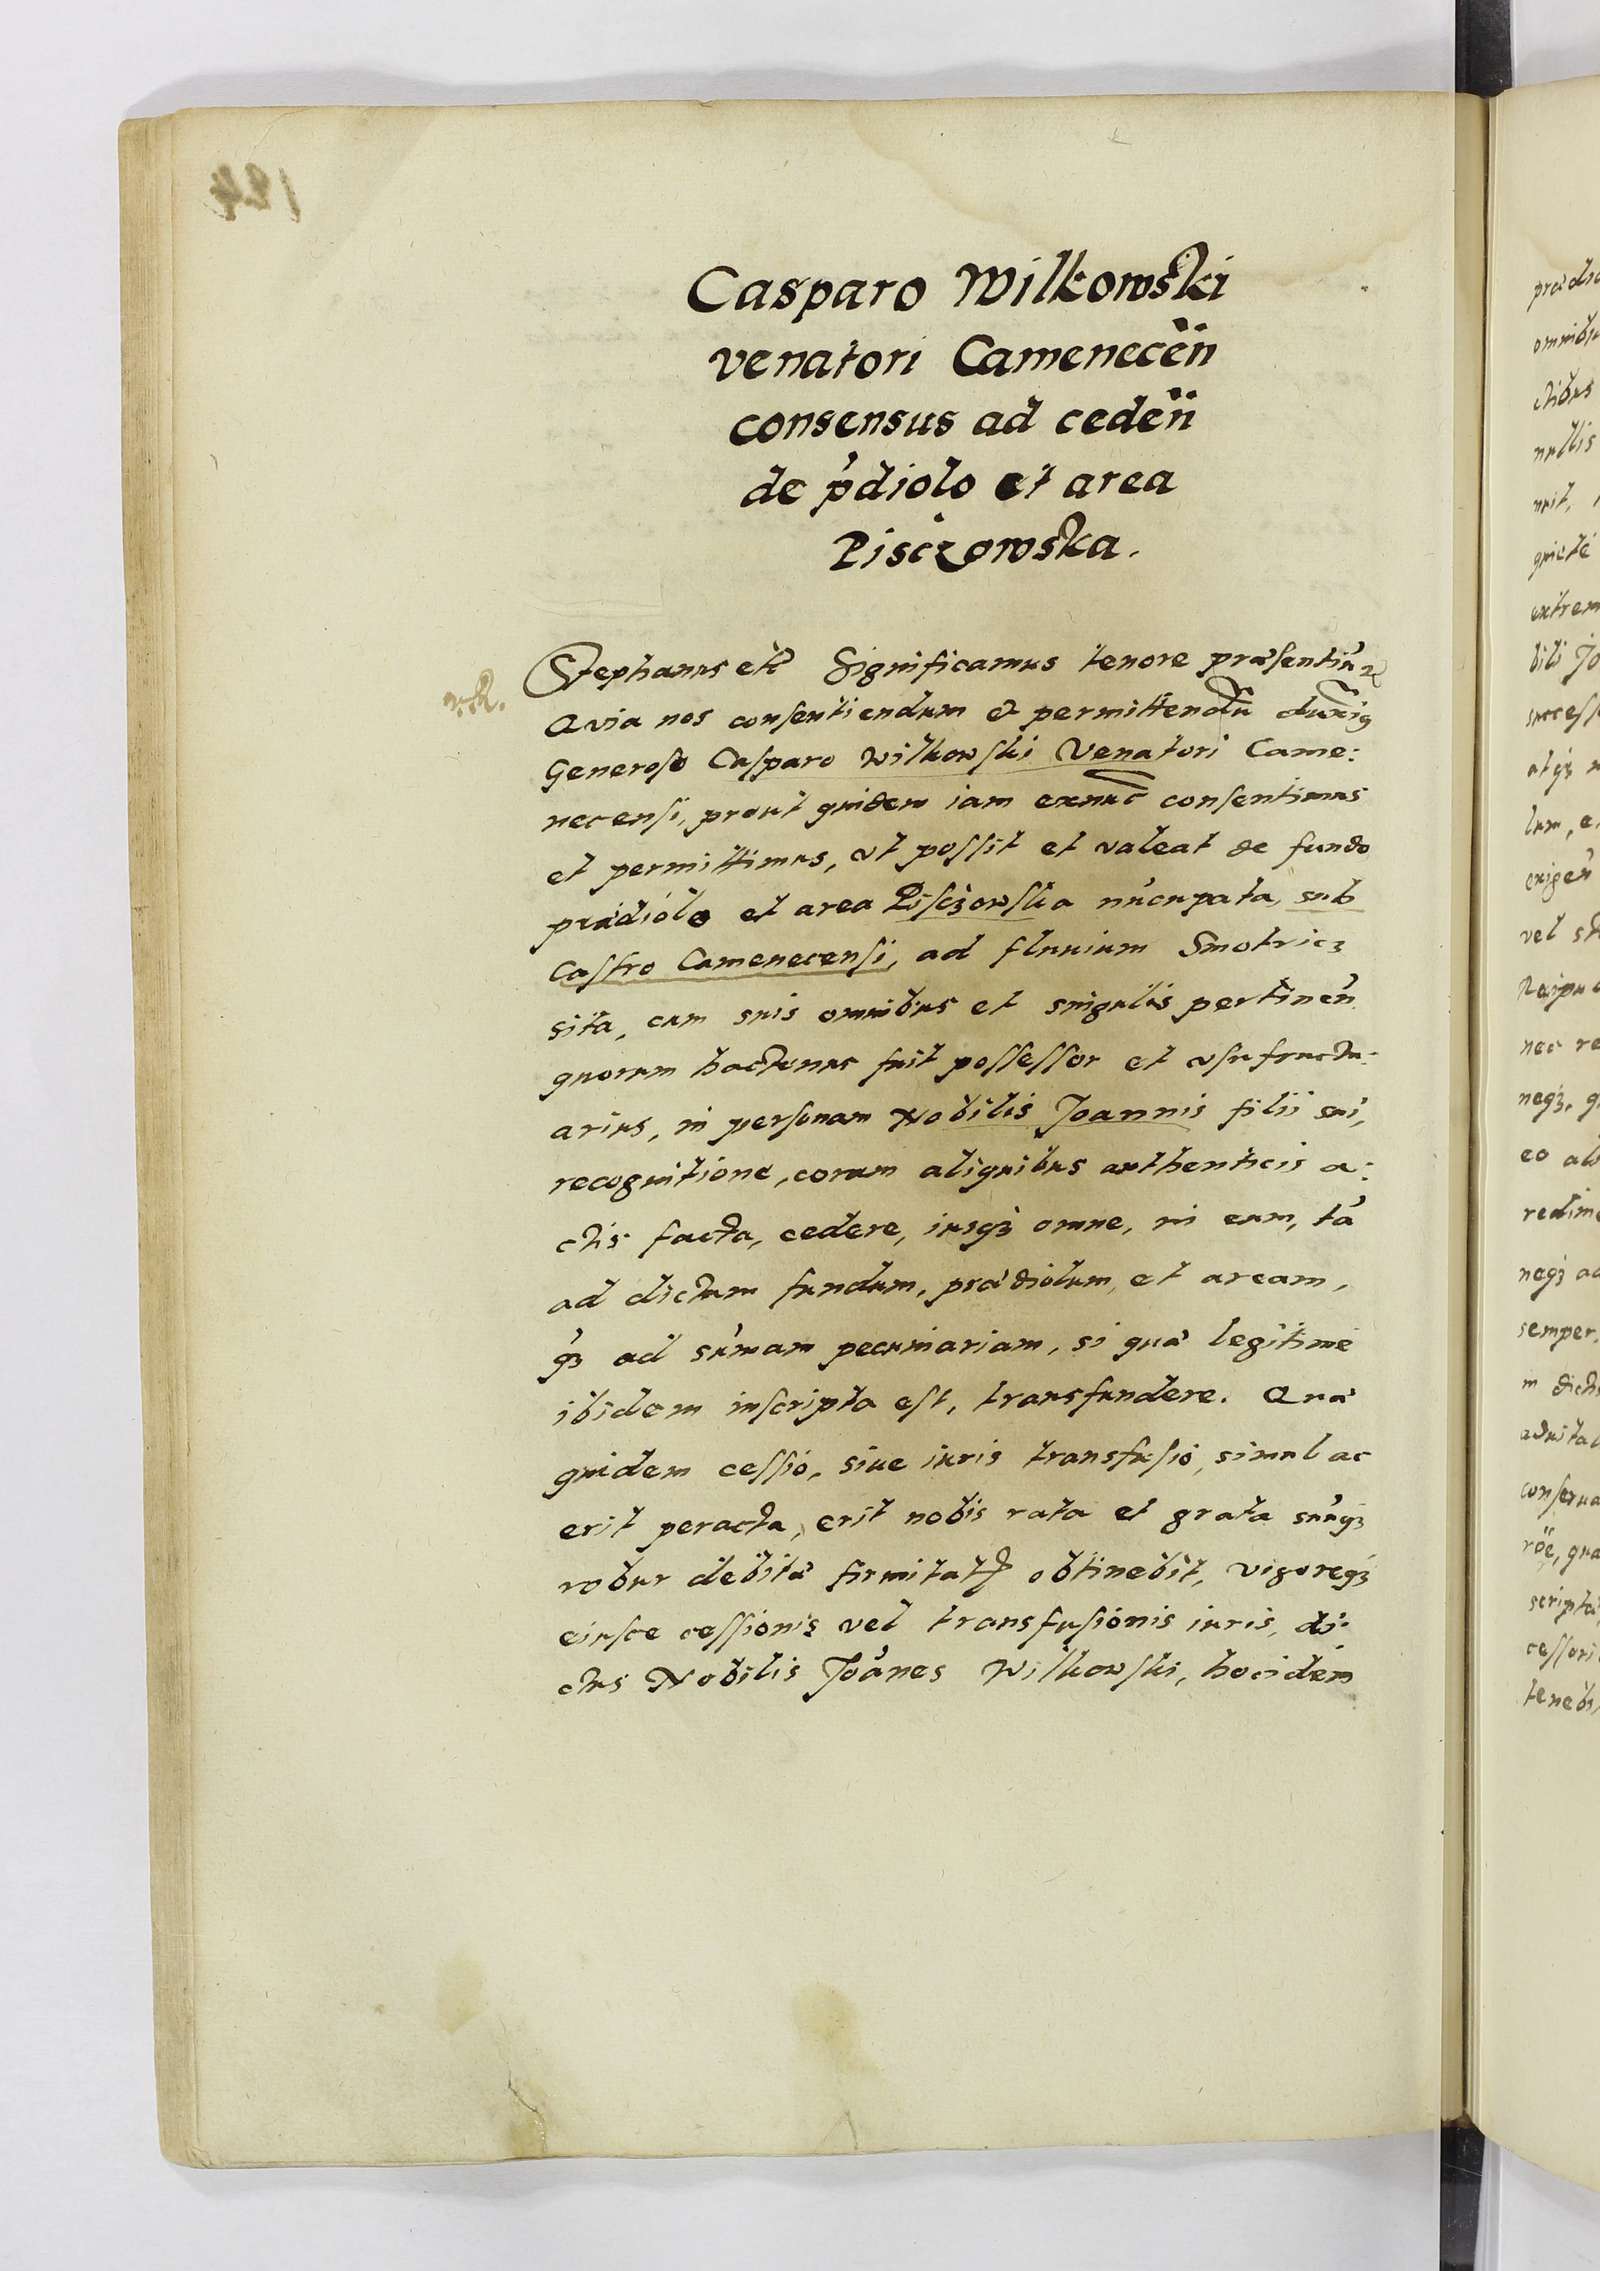 Casparo Wilkowski
venatori Camenecen̈
consensus ad ceden̈
de p̓diolo et area
Pisczowska.
Stephanus etc̃ Significamus tenore præsentiũꝝ
Quia nos consentiendum et permittendũ duxim9
Generoso Casparo Wilkowski Venatori Came:
necensi, prout quidem iam exnũc consentimus
et permittimus, vt possit et valeat de fundo
prædiolo et area Pisczowska nu̓cupata, sub
Castro Camenecensi, ad fluuium Smotricz
sita, cum suis omnibus et singulis pertinen̓
quorum hactenus fuit possessor et vsufructu-
arius, in personam Nobilis Joannis filii sui,
recognitione, coram aliquibus authenticis a:
ctis facta, cedere, iusqꝫ omne, in eum, ta̓
ad dictum fundum, prædiolum, et aream,
qꝫ̓ ad su̓mam pecuniariam, si quæ legitime
ibidem inscripta est, transfundere. Quæ
quidem cessio, siue iuris transfusio, simul ac
erit peracta, erit nobis rata et grata suu̓qꝫ
robur debitæ firmitatꝭ obtinebit, vigoreqꝫ
eiusce cessionis vel transfusionis iuris, di-
ctus Nobilis Joa̓nes Wilkowski, hocidem